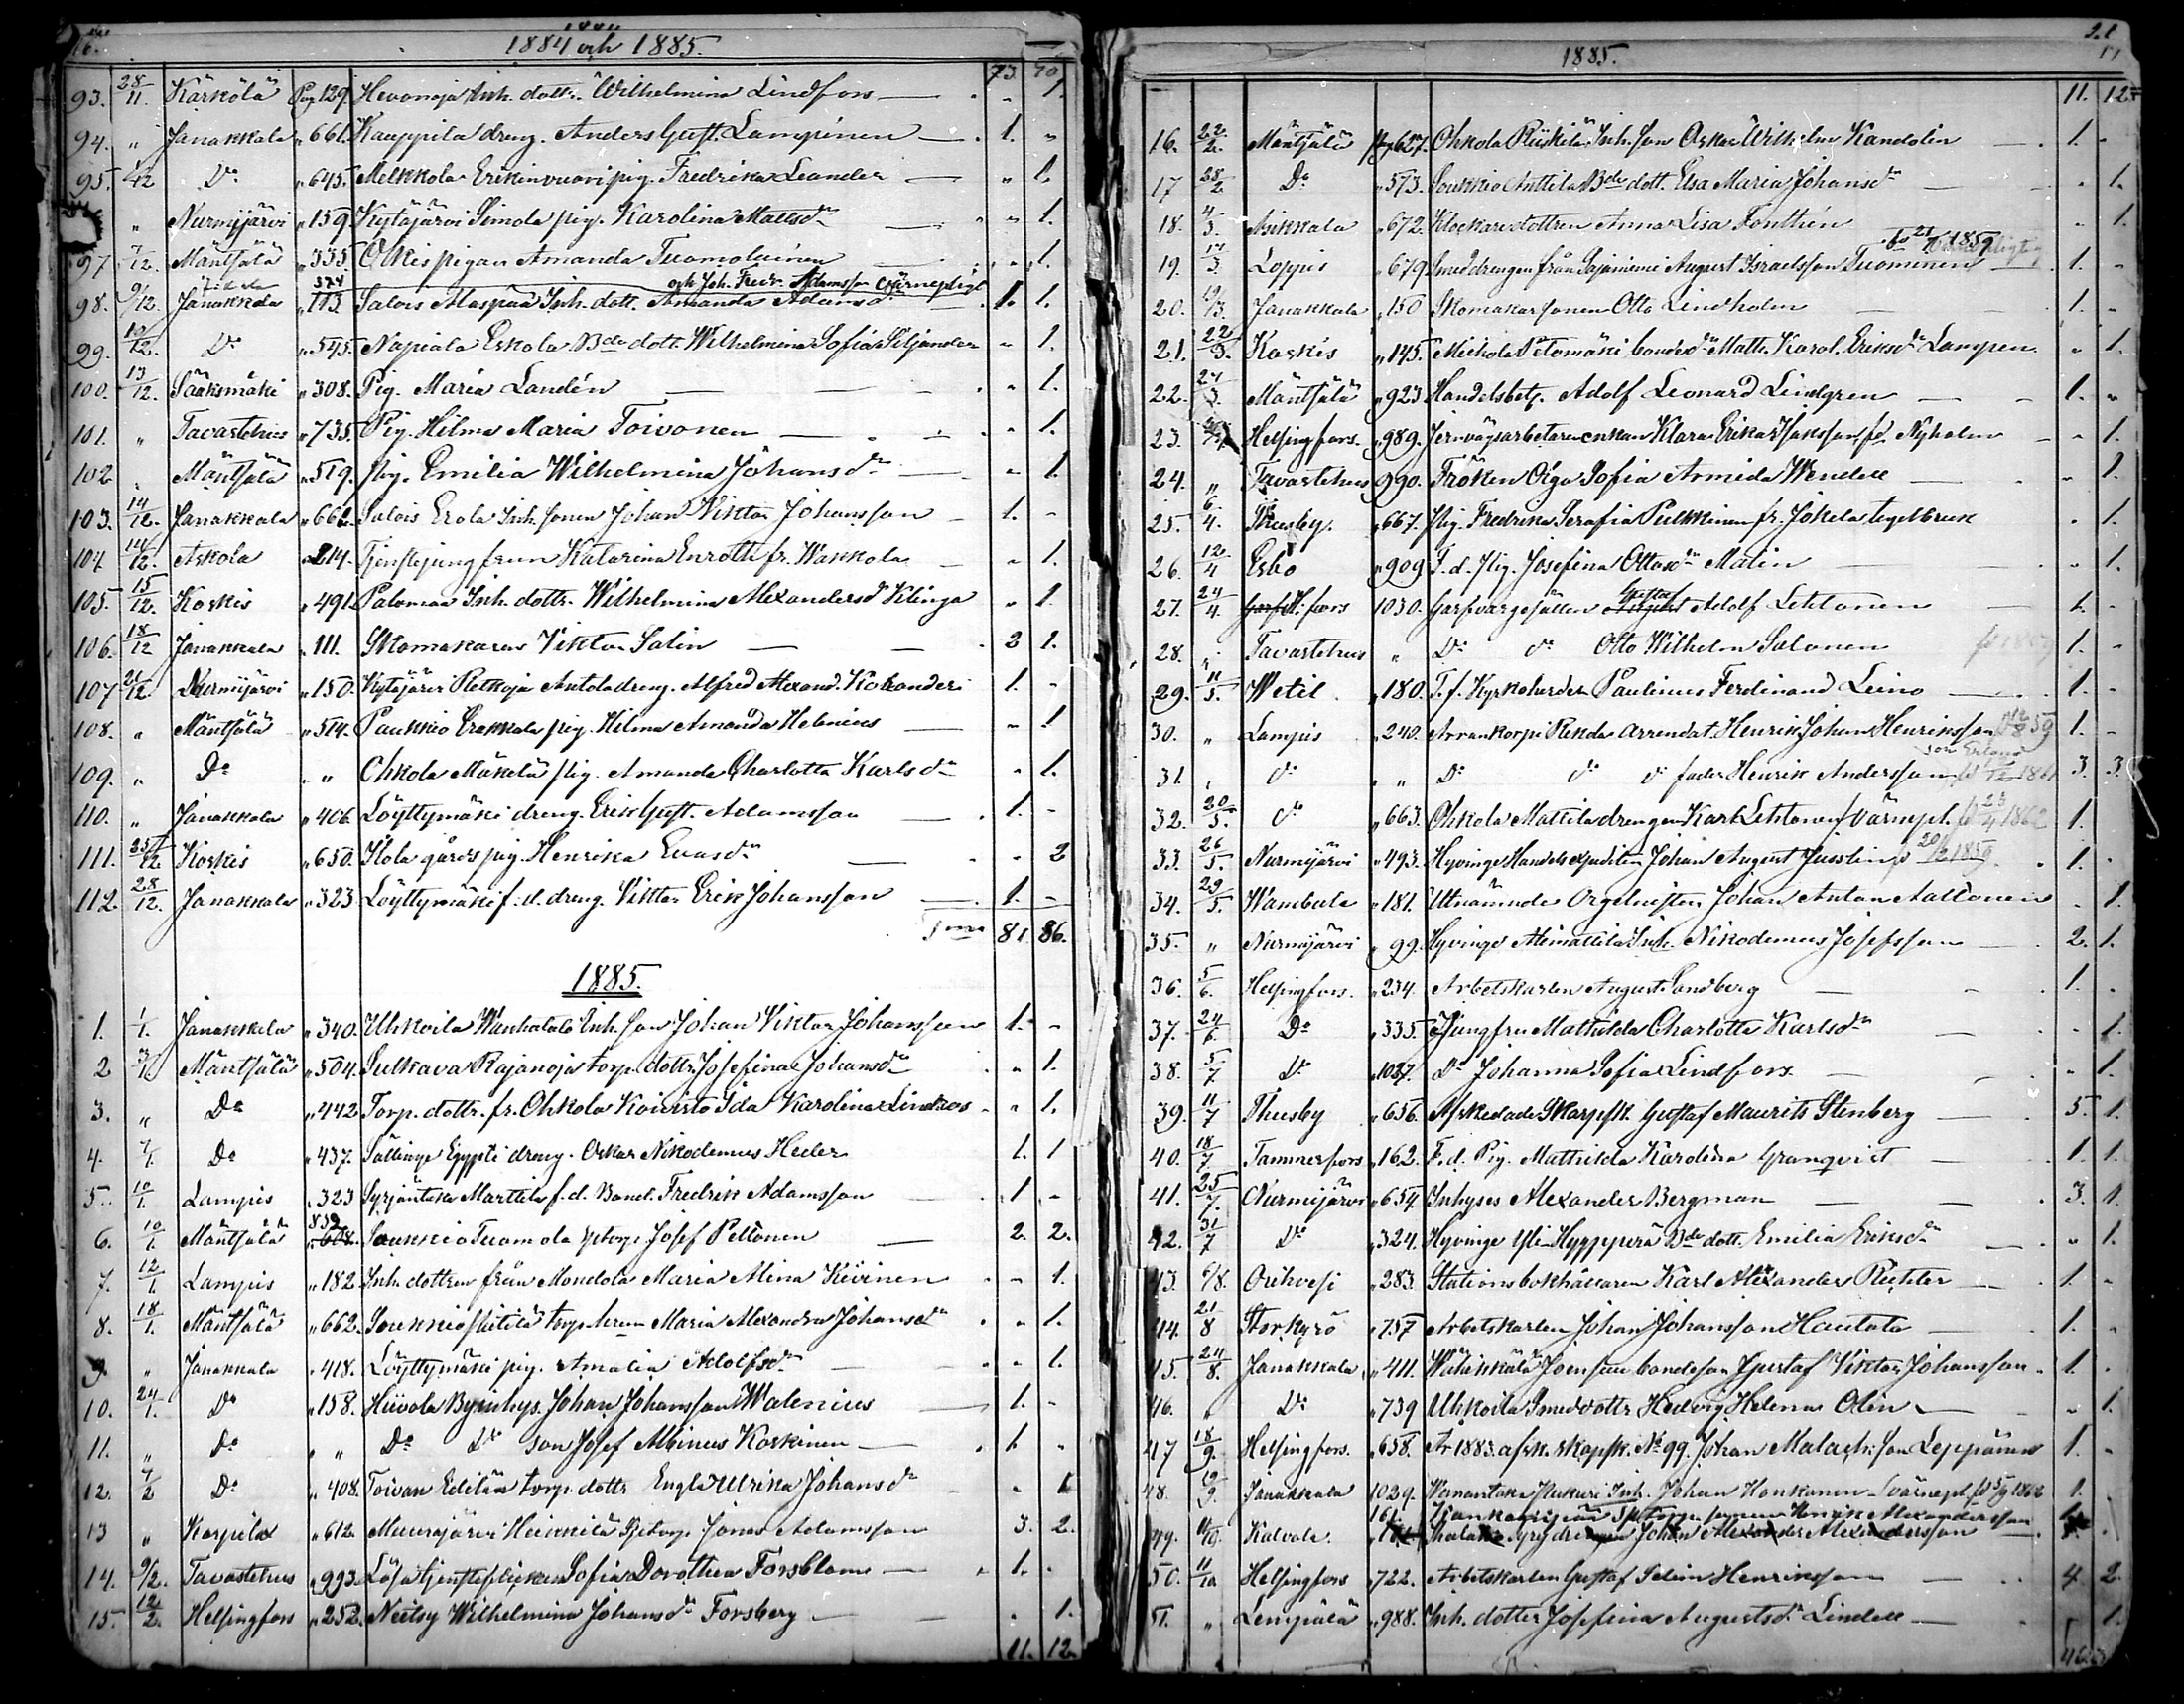 16.
1884 och 1885.
73. 70
93. 28/11. Kärkölä Pag 129. Hevonoja Inh. dottr. Wilhelmina Lindfors — " 1.
94. " Janakkala " 661. Kauppila dreng. Anders Gust. Lampinen — 1. "
95. 1/12 Do " 645. Melkkola Erikinvuori pig. Fredrika Leander — " 1.
" Nurmijärvi " 159 Kytäjärvi Simola pig. Karolina Mattsdr — " 1.
97. 7/12. Mäntsälä " 335. Olkis pigan Amanda Tuomolainen " 1.
och Joh. Fredr. Adamsson värnepligt
98. 9/12. Janakkala 574 " 113. Salois Alaspää Inh. dott. Amanda Adamsdr 1. 1.
99. 10/12. Do " 545. Napiala Eskola Bde dott. Wilhelmina Sofia Siljander " 1.
100. 13/12. Sääksmäki " 308. Pig. Maria Landén — — " 1.
101. " Tavastehus " 735. Pig. Hilma Maria Toivonen — " 1.
102 " Mäntsälä " 519. Pig. Emilia Wilhelmina Johansdr — " 1.
103. 14/12. Janakkala " 662. Salois Erola Inh. sonen Johan Viktor Johansson — 1. "
104 14/12. Askola " 214. Tjenstejungfrun Katarina Enroth fr. Wakkola — " 1.
105. 15/12. Koskis " 491. Palomaa Inh. dottr. Wilhelmina Alexandersdr Klinga " 1.
106. 18/12 Janakkala " 111. Skomakaren Viktor Salin — — 2 1.
107 21/12. Nurmijärvi " 150. Kytäjärvi Retkoja Antola dreng. Alfred Alexand. Kohander 1. "
108. " Mäntsälä " 514. Paukkio Erakkala pig. Hilma Amanda Helenius — " 1
109. " Do " " Ohkola Mäkelä pig. Amanda Charlotta Karlsdr " 1.
110. " Janakkala " 406. Löyttymäki dreng. Erik Gust. Adamsson — 1. "
111. 25/12 Koskis " 650. Kola gårds pig. Henrika Evasdr — " 2
112. 28/12. Janakkala " 323 Löyttymäki f.d. dreng. Viktor Erik Johansson — 1. "
Sma 81. 86.
1885.
1. 1/1. Janakkala " 340. Uhkoila Wanhatalo Inh. son Johan Viktor Johansson 1. "
2 3/1 Mäntsälä " 504. Sulkava Rajanoja torp. dottr. Josefina Johansdr " 1.
3. " Do " 442 Torp. dottr. fr. Ohkola Koivisto Ida Karolina Lindroos " 1.
4. 7/1. Do " 437. Sälinge Egypti dreng. Oskar Nikodemus Heder 1. 1
5. 10/1. Lampis " 323 Syrjäntaka Marttila f.d. Bond. Fredrik Adamsson — 1 "
6. 10/1. Mäntsälä 832 Soukkio Tuomola sptorp. Josef Peltonen — 2. 2.
7. 12/1. Lampis " 182 Inh. dottren från Mondola Maria Mina Kivinen " 1.
8. 18/1. Mäntsälä " 662. Soukkio torp. Maria Alexandra Johansdr " 1.
9. " Janakkala " 418. Löyttymäki pig. Amalia Adolfsdr — " 1.
10. 24/1. Do " 158. Hiivola By inhys. Johan Johansson Walenius — 1. "
11. " Do " " Do Do son Josef Albinus Koskinen — 1 "
12. 4/2 Do " 408. Toivan Editän torp. dottr Engla Ulrika Johansdr " 1
13 " Karpila " 612. Muurajärvi Heikkilä sptorp. Jonas Adamsson 3. 2.
14. 9/2. Tavastehus " 993. Lösa tjensteflickan Sofia Dorothea Forsblom — 1. "
15. 12/2. Helsingfors " 252. Neitsy Wilhelmina Johansdr Forsberg — " 1.
11. 12.
1885.
17
11. 12
16. 22/2. Mäntsälä Pag 627. Ohkola Riiskilä Inh. son Oskar Wilhelm Kandolin — 1. "
17 28/2 Do " 573. Soukkio Anttila Bde dott. Elsa Maria Johansdr " 1.
18. 4/3. Asikkala " 672. Klockaredottren Anna Lisa Fonthén " 1.
19. 17/3. Loppis " 679. Smeddrengen från Sajaniemi August Israelsson Tuominen 1859 — 1. "
20. 19/3. Janakkala " 150 Skomakarsonen Otto Lindholm — 1. "
21. 22/3. Koskis " 145. Michola Petomäki bonded. Math. Karol. Eriksdr Lampen " 1.
22. 27/3. Mäntsälä " 923. Handelsbetj. Adolf Leonard Lindgren — 1. "
23. Helsingfors. " 989. Jernvägsarbetareenkan Klara Erika Isaksson fd. Nyholm " 1.
24. " Tavastehus " 990. Fröken Olga Sofia Armida Wendell — " 1.
25. 6/4. Thusby. " 667. Pig. Fredrika Serafia Pulkkinen fr. Jokela tegelbruk " 1.
26. 12/4 Esbo " 909 F.d. Pig. Josefina Ottosdr Malin — " 1.
27. 24/4. H:fors 1030. Garfvargesällen Gustaf Adolf Lehtonen — 1. "
28. " Tavastehus " Do do Otto Wilhelm Salonen 1. "
29. 11/5. Wetil " 180. T.f. Kyrkoherden Paulinus Ferdinand Leino — 1. "
30. " Lampis " 240. Arrankorpi Rekola arrendat. Henrik Johan Henriksson 59 1. "
31. " do " " Do do do fader Henrik Andersson 3. 3.
32. 20/5. do " 663. Ohkola Mattila drengen Karl Lehtonen /värnepl. 23/4 1862 1.
33. 26/5. Nurmijärvi " 493. Hyvinge Handelsexpediten Johan August Jusslin 1859. 1. "
34. 29/5. Wambula " 181. Utnämnde Orgelnisten Johan Anton Aaltonen " 1.
35. " Nurmijärvi " 99. Hyvinge Alimattila Inh. Nikodemus Josefsson — 2. 1.
36. 5/6. Helsingfors. " 234. Arbetskarlen August Sandberg — 1. "
37. 24/6. Do " 335. Jungfru Mathilda Charlotta Karlsdr — " 1.
38. 5/7 Do " 1027. Do Johanna Sofia Lindfors — " 1.
39. 11/7 Thusby " 656. Afskedade Skarpsk. Gustaf Maurits Stenberg — 5. 1.
40. 18/7. Tammerfors " 162. F.d. Pig. Mathilda Karolina Granqvist — 1. 1.
41. 25/7. Nurmijärvi " 654. Inhyses Alexander Bergman — 3. 1.
42. 31/7 Do " 324. Hyvinge Yli-Hyyppärä Bde dott. Emilia Eriksdr — " 1.
43. /8. Orihvesi " 283. Stationsbokhållaren Karl Alexander Richter — 1. "
44. 21/8 Storkyrö " 757 Arbetskarlen Johan Johansson Hautala — 1. "
45. 24/8. Janakkala " 411. Wähikkälä Joensuu bondeson Gustaf Viktor Johansson 1. "
46. " Do " 739 Uhkoila Smeddottr Hedvig Helena Olin — " 1.
47 18/9. Helsingfors. " 658. Ar 1883 afsk. skarpsk. No 99. Johan Malach.son Leppänen 1. "
48. 19/9. Janakkala 1029. Wanantaka Inh. Johan Honkanen /värnepl. 1862 1.
161. sptorp. sonen Henrik Alexandersson
49. Kalvola. Johan Alexander Alexandersson
50. 11/10 Helsingfors " 722. Arbetskarlen Gustaf Selim Henriksson — 4. 2.
51. " Lempälä " 988. Inh. dotter Josefina Augustsdr Lindell — " 1.